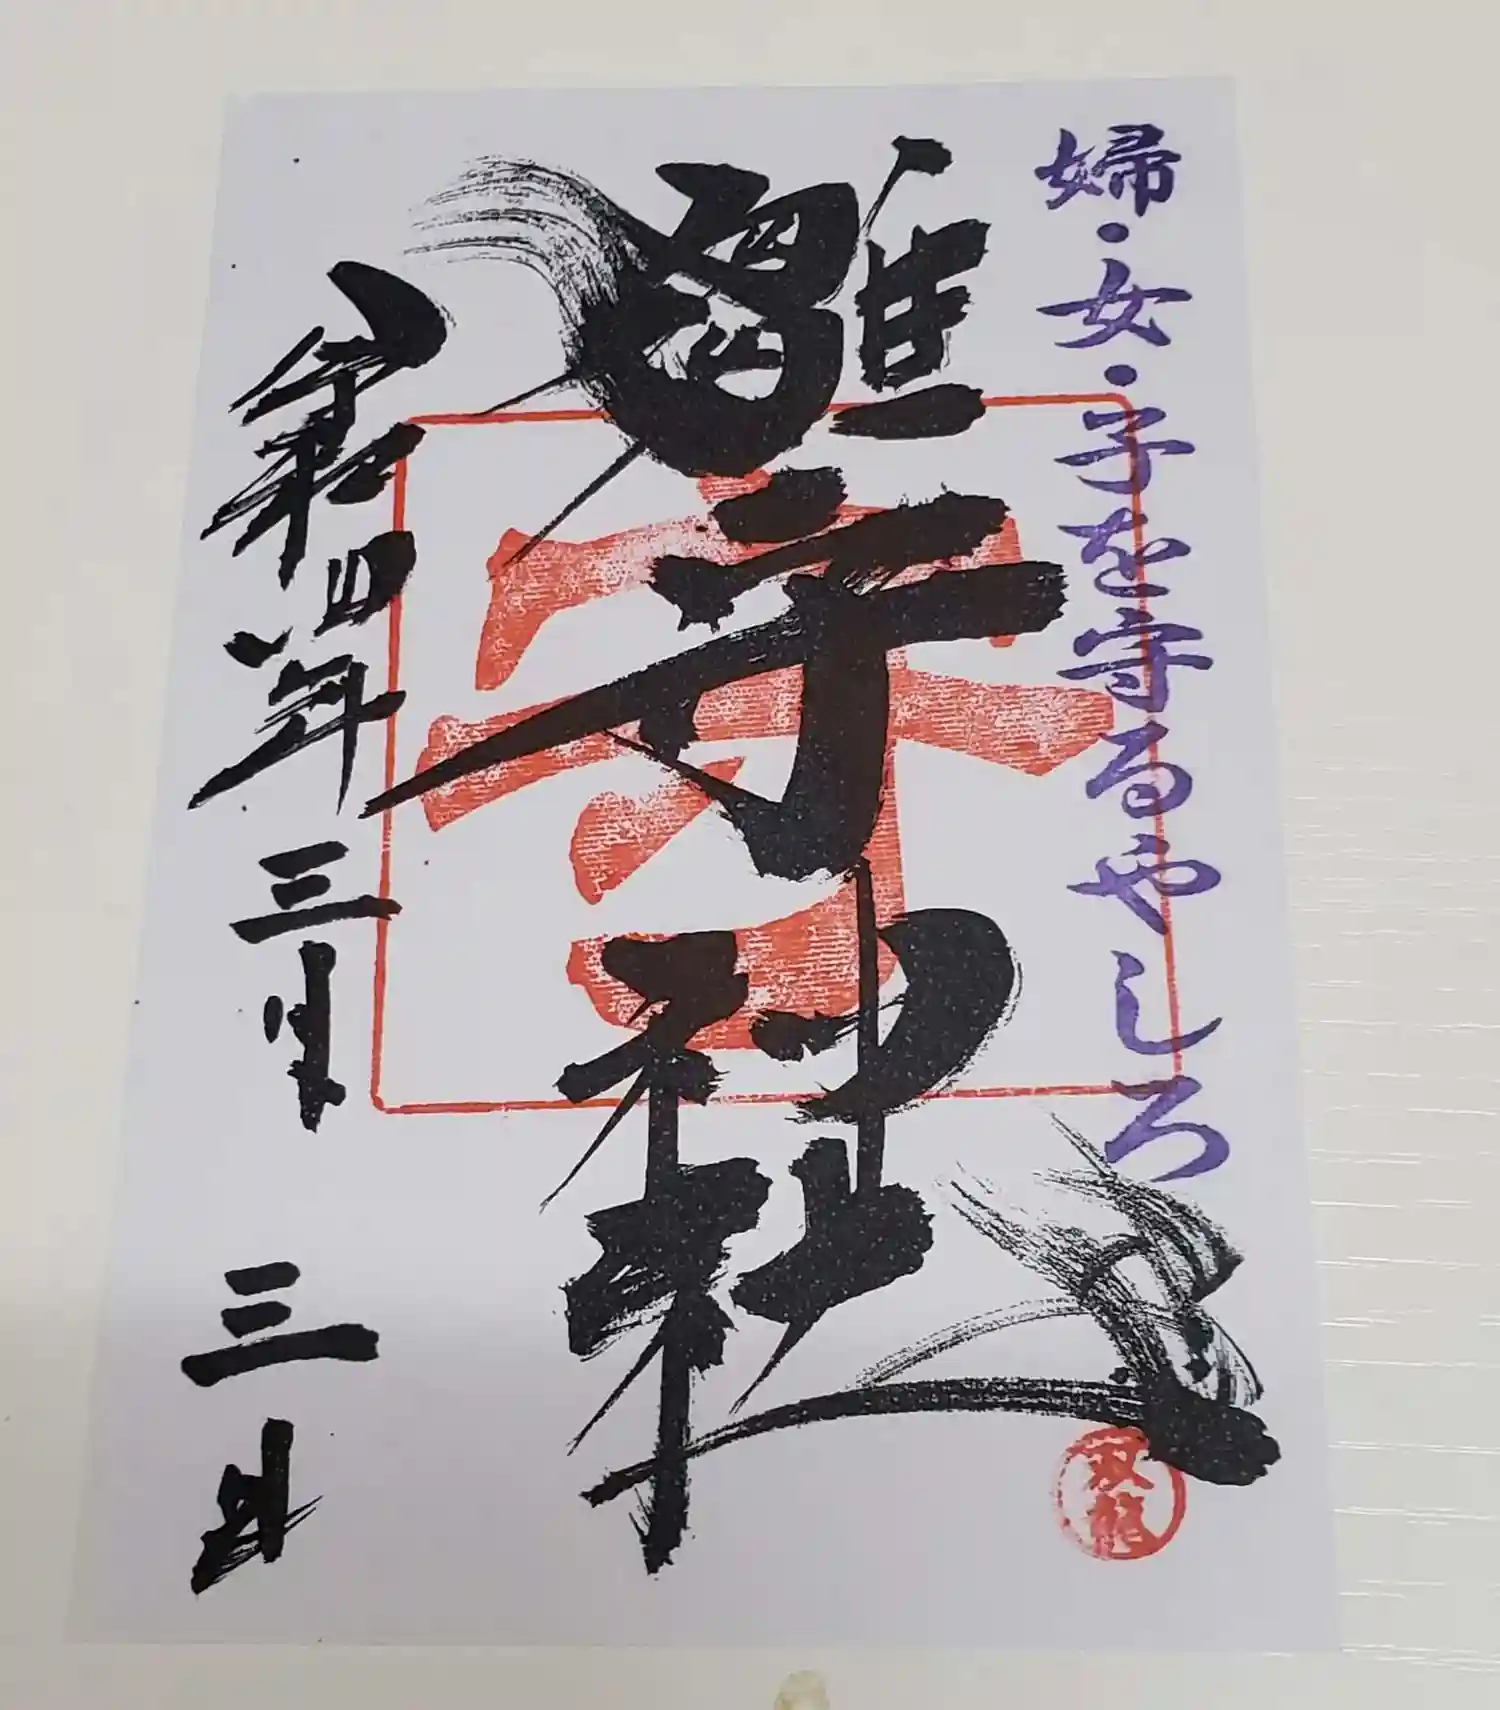 婦・女・子を守るやしろ
雛守神社
守
双龍
令和四年三月三日